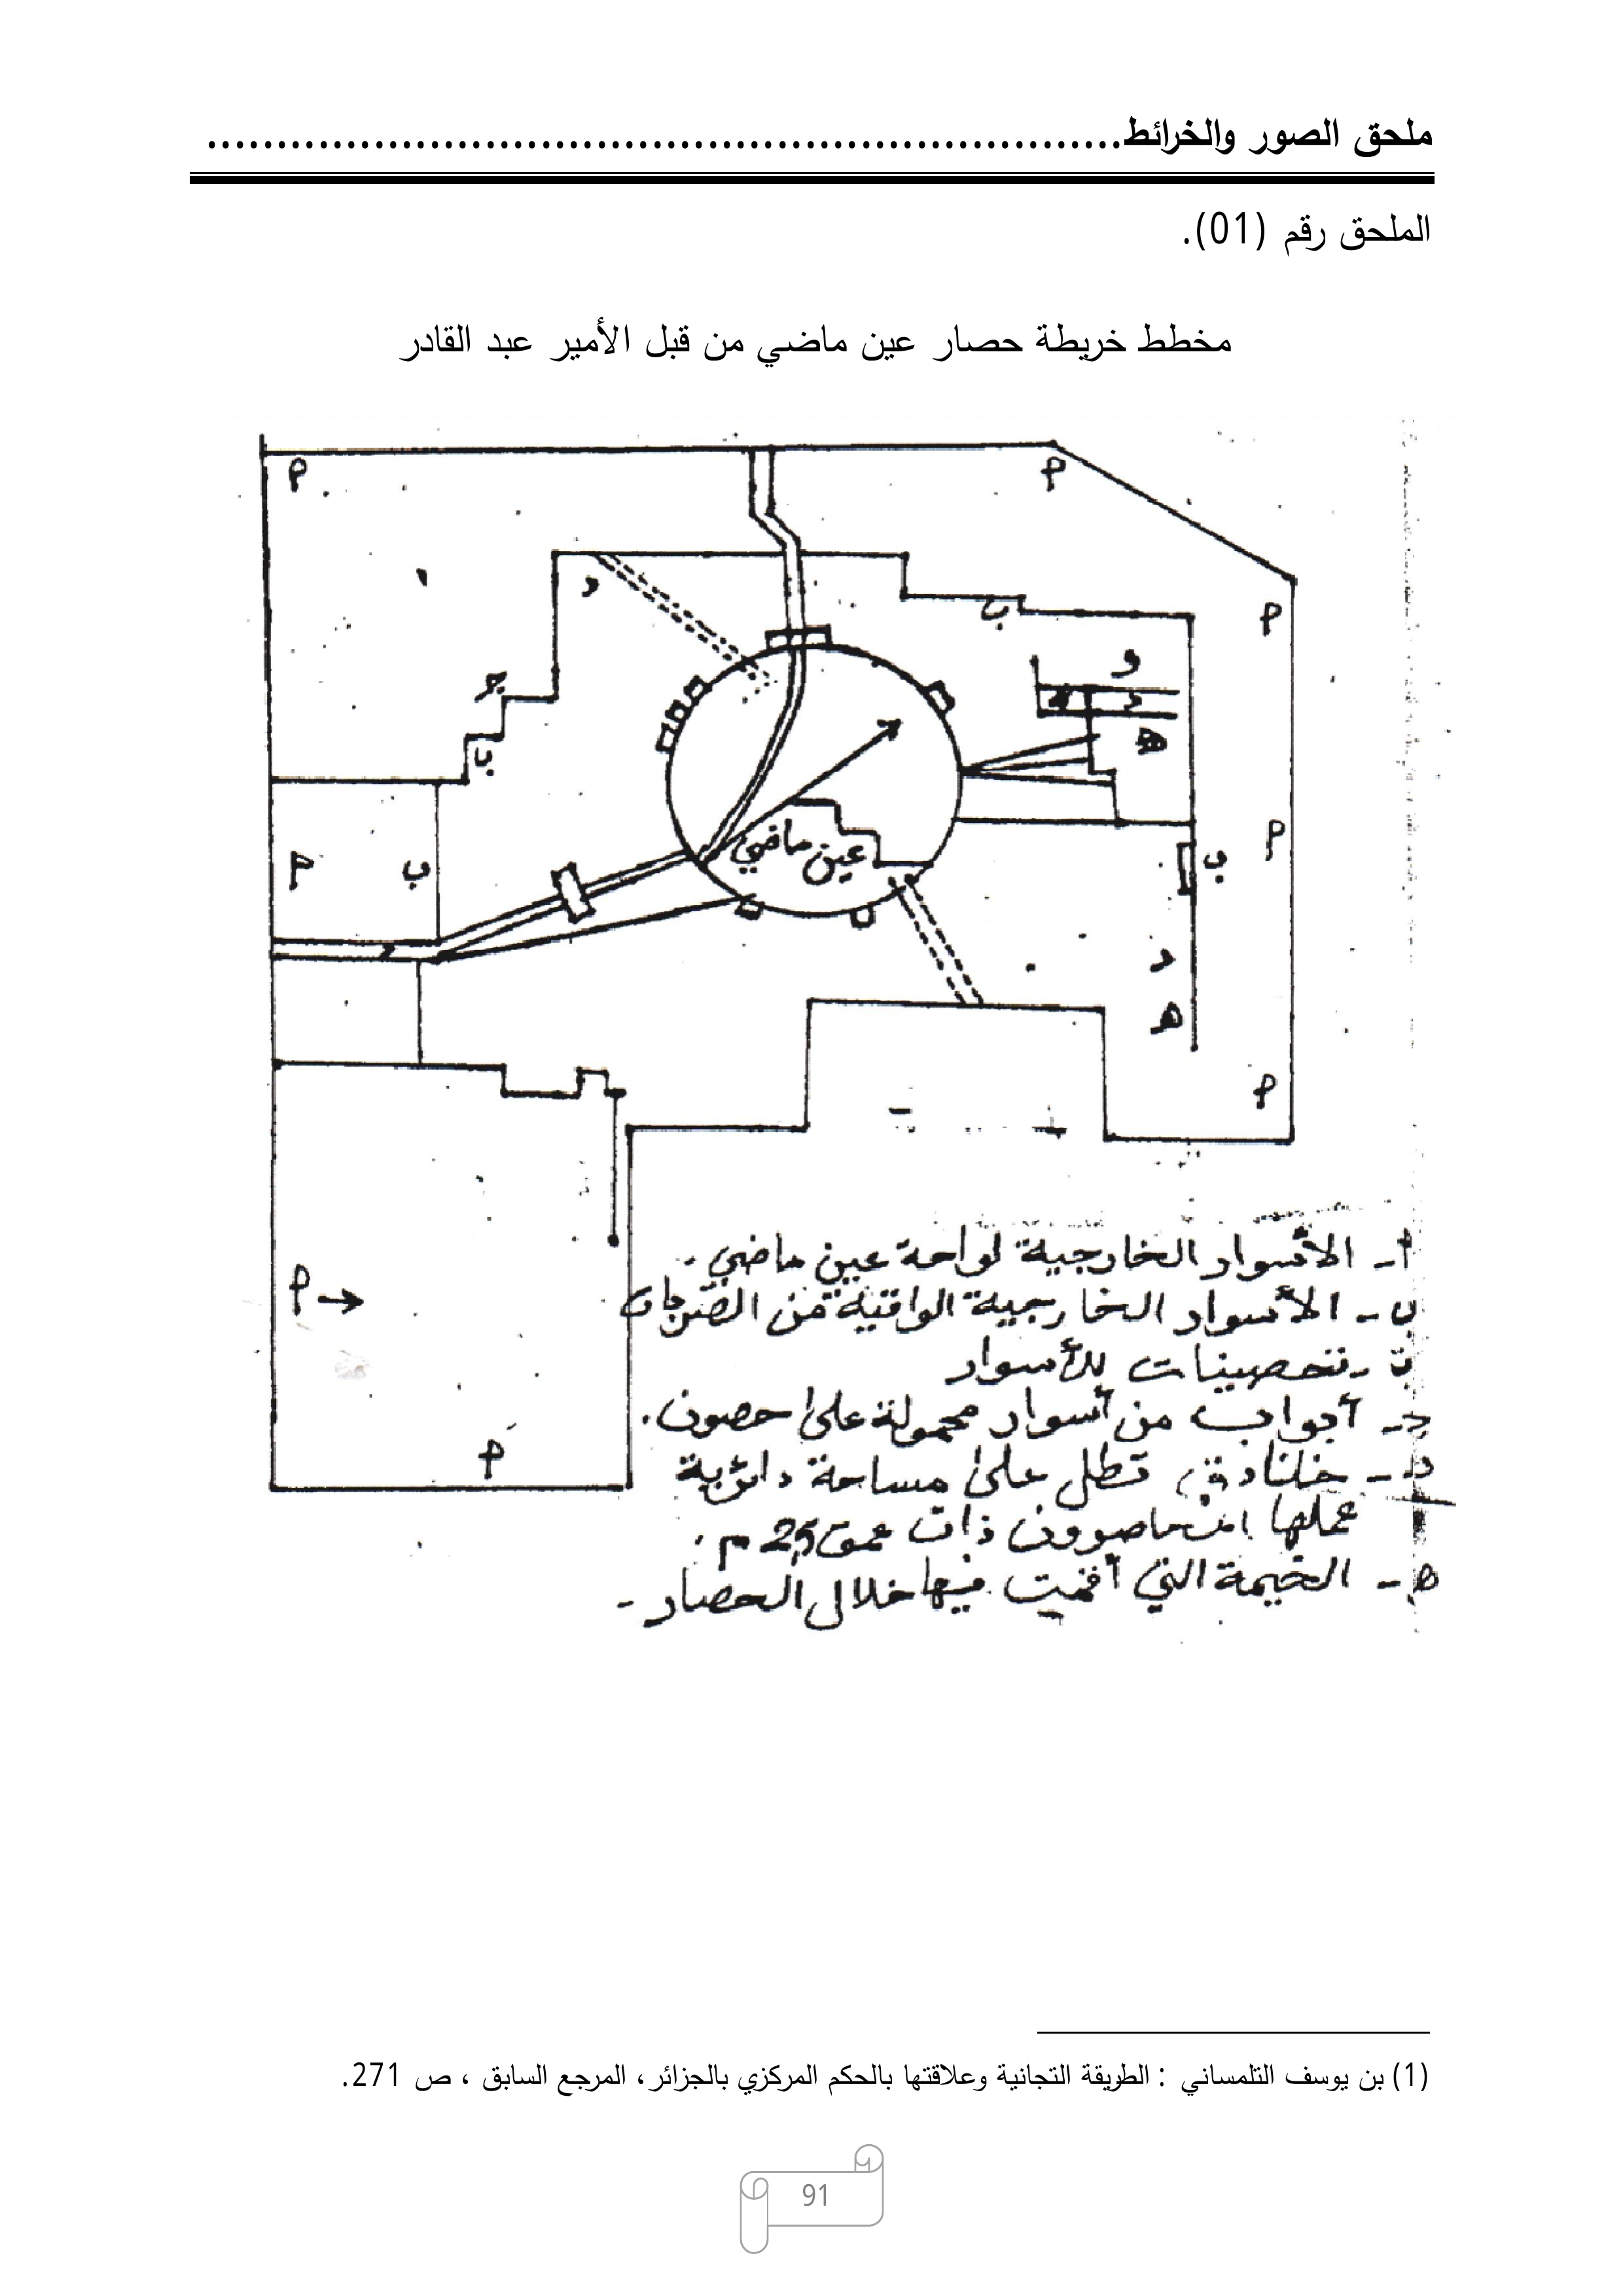 ملحق الصور والخرائط................................................................
الملحق رقم (01).
مخطط خريطة حصار عين ماضي من قبل الأمير عبد القادر
م
م
د
ب
م
و
ج
د
ب
هـ
عين ماضي
م
ب
م
ب
د
د
هـ
م
م
م
أ- الأسوار الخارجية لواحة عين ماضي.
ب- الأسوار الخارجية الواقية من
تحصينات للأسوار
ج- أبواب من أسوار محمولة على حصون.
د- خنادق تطل على مساحة دائرية
عملها المحاصرون ذات عمق 2,5 م.
ه- الخيمة التي أقمت فيها خلال الحصار-
(1) بن يوسف التلمساني : الطريقة التجانية وعلاقتها بالحكم المركزي بالجزائر، المرجع السابق ، ص 271.
91